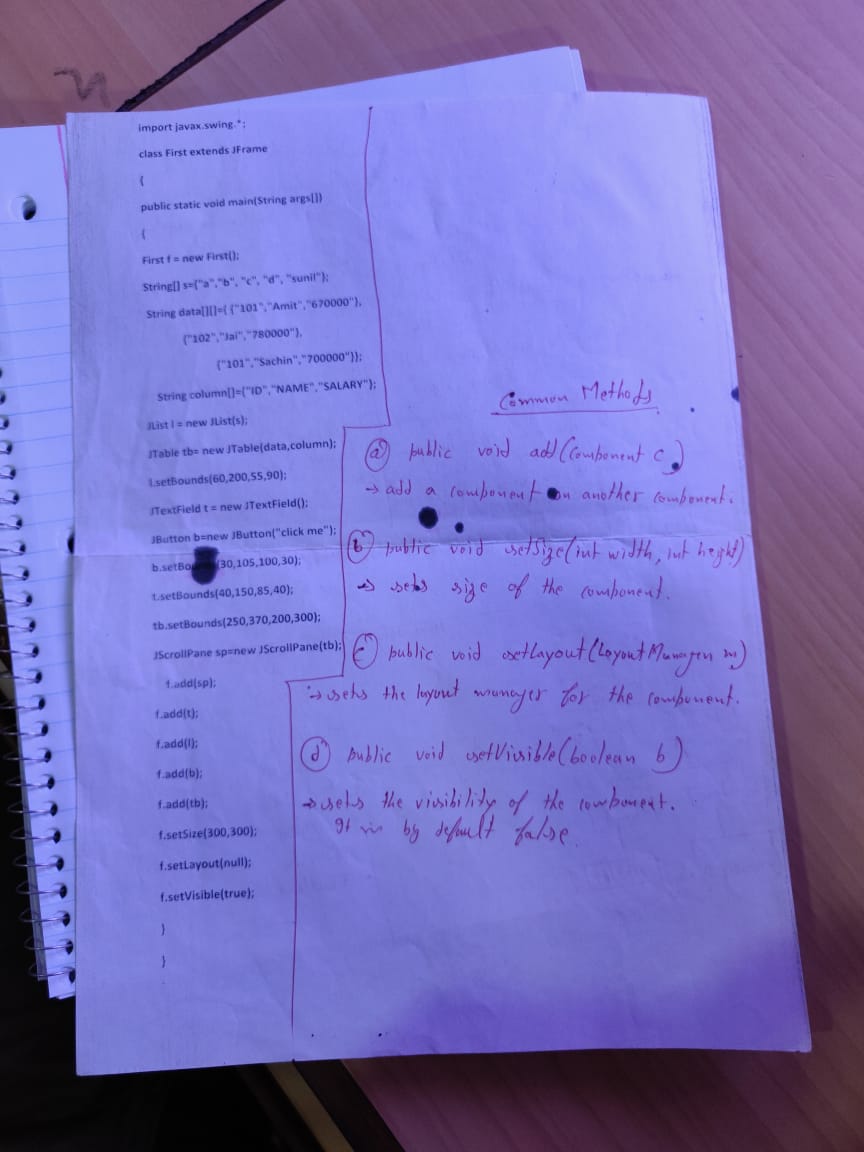 import javax.swing.*;
class First extends JFrame
{
public static void main(String args[])
{
First f = new First();
String[] s={"a","b", "c", "d", "sunil"};
String data[][]={ {"101","Amit","670000"},
{"102","Jai","780000"},
{"101","Sachin","700000"}};
String column[]={"ID","NAME","SALARY"};
JList l = new JList(s);
JTable tb= new JTable(data,column);
l.setBounds(60,200,55,90);
JTextField t = new JTextField();
JButton b=new JButton("click me");
(30,105,100,30);
t.setBounds(40,150,85,40);
tb.setBounds(250,370,200,300);
JScrollPane sp=new JScrollPane(tb);
f.add(sp);
f.add(t);
f.add(l);
f.add(b);
f.add(tb);
f.setSize(300,300);
f.setLayout(null);
f.setVisible(true);
}
}
Common Methods
(a) public void add(Component c)
→ add a component on another component.
(b) public void setSize(int width, int height)
→ sets size of the component.
(c) public void setLayout(LayoutManager m)
→ sets the layout manager for the component.
(d) public void setVisible(boolean b)
→ sets the visibility of the component.
It is by default false.